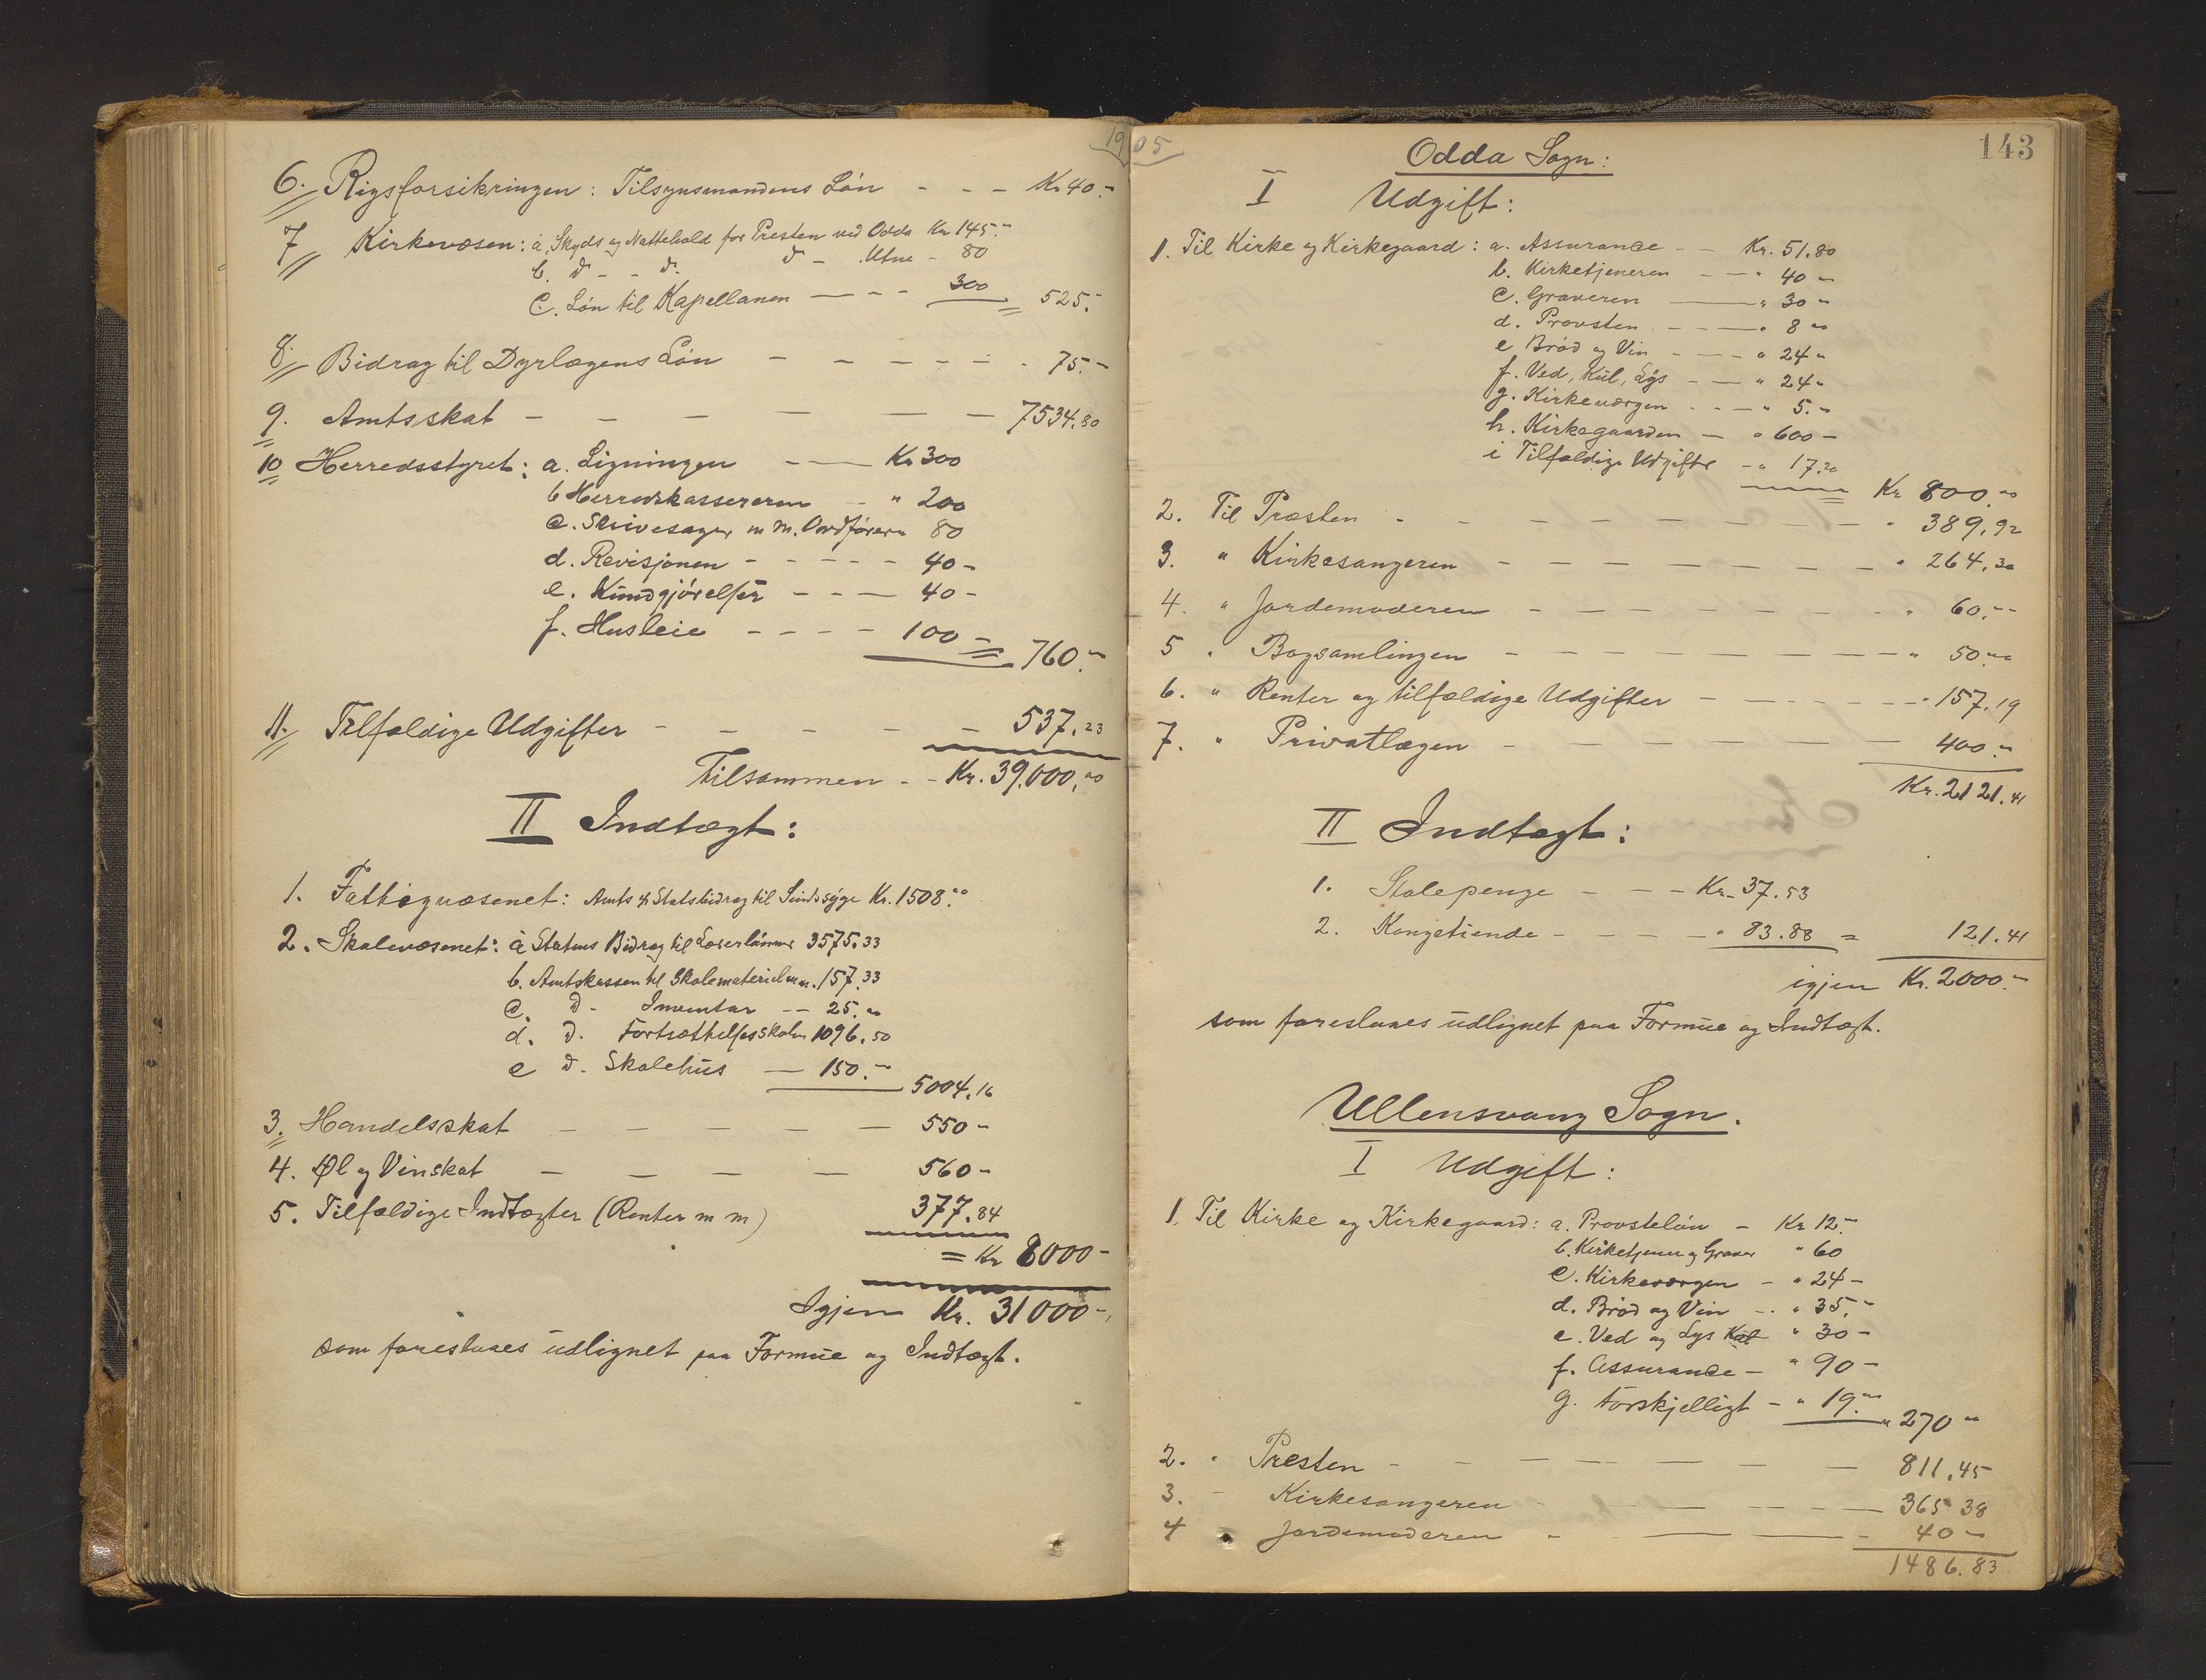 1905
6. Rigsforsikringen: Tilsynsmandens Løn - - - Kr 40.-
7 Kirkevæsen: a. Skyds og Nattehold for Presten ved Odda Kr 145.-
b. do - - do. do - Utne - 80
c. Løn til Kapellanen — - - 300 = 525.-
8. Bidrag til Dyrlægens Løn - - - - - - - 75.-
9. Amtsskat - - - - - - 7534.80
10 Herredsstyret: a. Ligningen - — Kr 300
b Herredskassereren - " 200
c. Skrivesager m m. Ordføreren 80
d. Revisjonen - - - - - 40 -
e. Kundgjørelser - - — 40 -
f. Husleie - - - - 100 - = 760.-
11. Tilfældige Udgifter - - - - - 537.23
Tilsammen - - Kr. 39.000,00
II Indtægt:
1. Fattigvæsenet: Amts & Statsbidrag til Sindssyge Kr. 1508.00
2. Skolevæsenet: a Statens Bidrag til Lærerlønner 3575.33
b. Amtskassen til Skolemateriel m.m. 157.33
c. do - Inventar -- 25.00
d. do. Fortsættelsesskolen 1096.50
e do. Skolehus — 150.-
5004.16
3. Handelsskat - - - - - 550 -
4. Øl og Vinskat - - - - 560 -
5. Tilfældige Indtægter (Renter m m) 377.84
= Kr 8000 -
Igjen Kr. 31000 -
som foreslaaes udlignet paa Formue og Indtægt.
143
Odda Sogn:
I Udgift:
1. Til Kirke og Kirkegaard: a. Assurance - - Kr. 51.80
b. Kirketjeneren - - " 40 -
c. Graveren — " 30 -
d. Provsten - - — " 8 00
e Brød og Vin - - - " 24 -
f. Ved, Kul, Lys - — " 24 -
g. Kirkeværgen - - - " 5.-
h. Kirkegaarden — " 600 -
i Tilfældige Udgifter - " 17.20
Kr 800.00
2. Til Præsten - - - - - - - - " 389.92
3. " Kirkesangeren - - - - - - - " 264.30
4. " Jordemoderen - - - - - - - " 60.--
5 " Bogsamlingen - - - - - - - " 50.00
6. " Renter og tilfældige Udgifter - - - - - - " 157.19
7. " Privatlægen - - - - - - 400.-
Kr. 2121.41
II Indtægt:
1. Stolepenge - - - Kr. 37.53
2. Kongetiende - - - - " 83.88 = 121.41
igjen Kr. 2000.-
som foreslaaes udlignet paa Formue og Indtægt.
Ullensvang Sogn.
I Udgift:
1. Til Kirke og Kirkegaard: a. Provsteløn - Kr 12.-
b. Kirketjener og Graver " 60
c. Kirkeværgen - " 24 -
d. Brød og Vin - - " 35.-
e. Ved og Lys Kul " 30 -
f. Assurance - " 90 -
g. Forskjelligt - " 19.00
" 270 00
2. " Presten - - - - - - - - 811.45
3. - Kirkesangeren - - - - - - 365 38
4 " Jordemoderen - - - - 40 -
1486.83